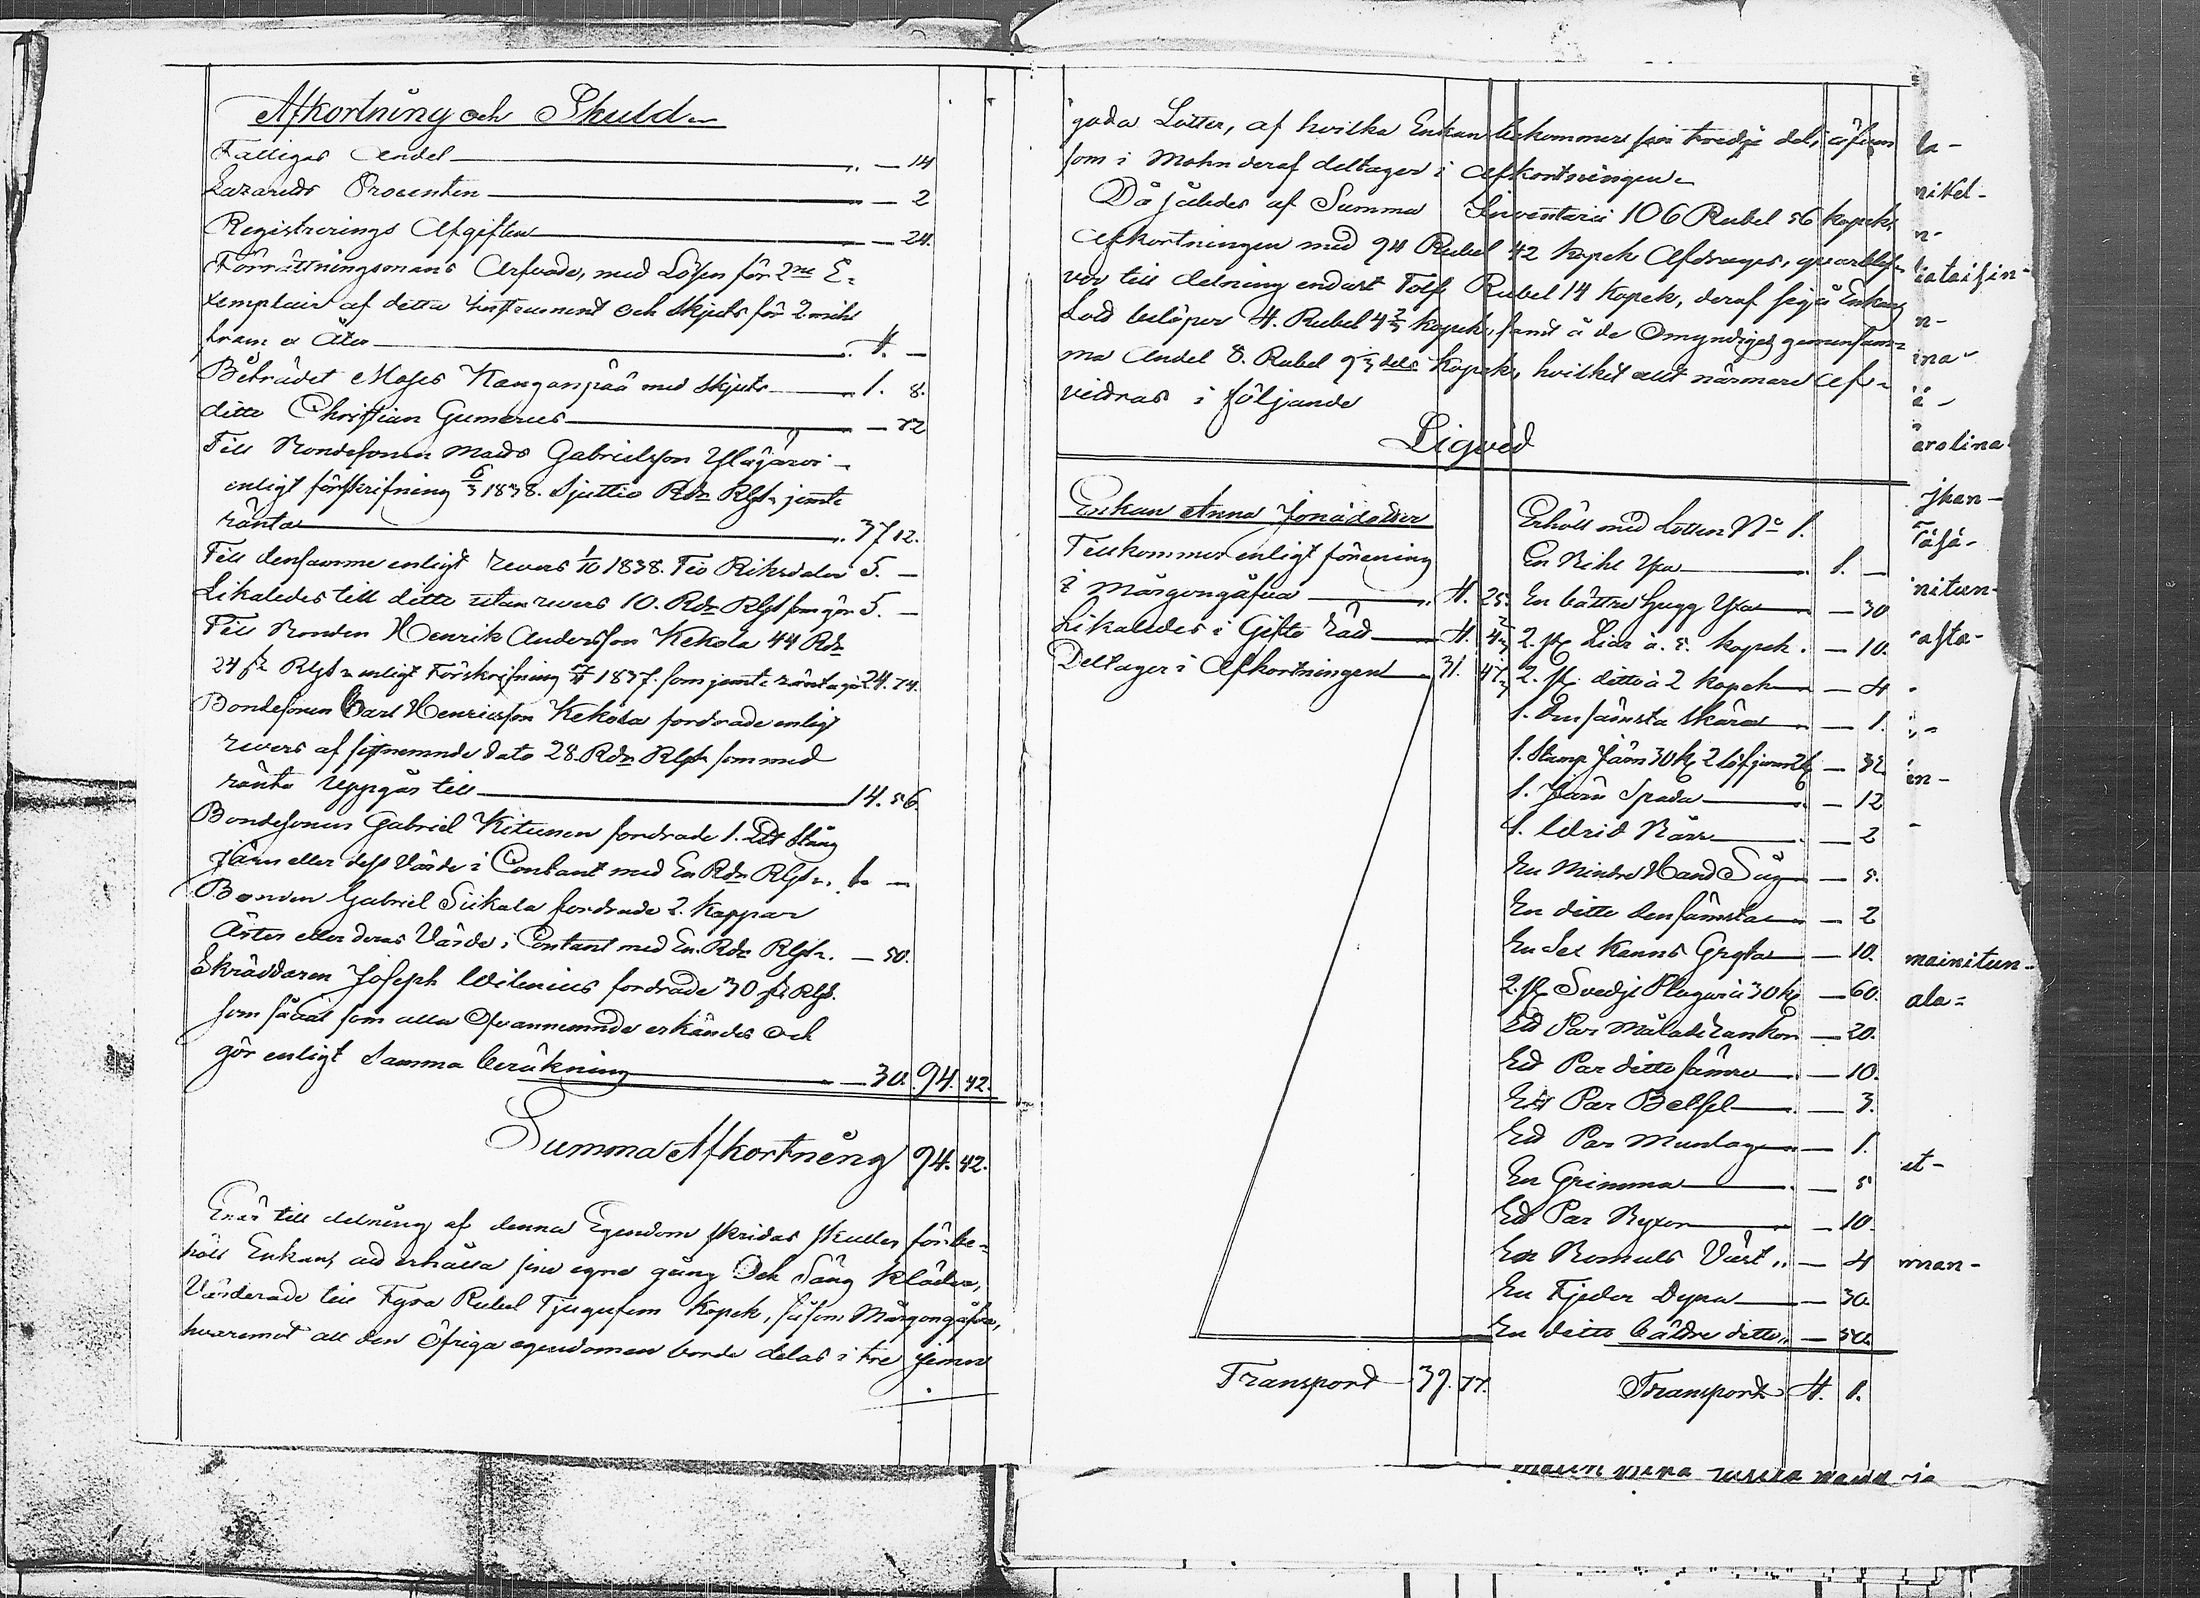 Afkortning och Skuld
Fattigas Andel — 14
Lazaretts Procenten — 2
Registrerings Afgiften — 24.
Förrättningsmans Arfvode, med Lösen för 2ne E=
xemplair af detta Instrument och Skjuts för 2 mihl
fram o Åter 4. —
Biträdet Moses Kangaspää med skjuts 1. 8.
ditto Christian Gumerus — 72
Till Bondesonen Mats Gabrielsson Ylijärvi
enligt förskrifning 6/3 1838. Sjuttio Rdr Rgs jemte
ränta 37 12.
Till densamme enligt revers 1/10 1838. Tio Riksdaler 5. —
Likaledes till ditto utan revers 10. Rdr Rgs som gör 5. —
Till Bonden Henrik Andersson Kekola 44 Rdr
24 sk Rgs enligt Förskrifning 1837. som jemte ränta gör 24. 74.
Bondesonen Carl Henricsson Kekola fordrade enligt
revers af sistnemnde dato 28. Rdr Rgs som med
ränta uppgår till 14. 56.
Bondesonen Gabriel Kitunen fordrade 1. Stång
Järn eller dess Värde i Contant med En Rdr Rgs. —
Bonden Gabriel Siikala fordrade 2. Kappar
Ärter eller deras Värde i Contant med En Rdr Rgs. — 50.
Skräddaren Joseph Wilenius fordrade 30 sk Rgs.
som såväl som alla Ofvannemnde erkändes och
gör enligt samma beräkning — 30. 94. 42.
Summa Afkortning 94. 42.
Enär till delning af denna Egendom skridas skulle, förbe=
höll Enkan, att erhålla sine egne gång Och Säng Kläder,
Värderade till Fyra Rubel Tjugufem Kopek, såsom Morgongåfva,
hvaremot all den Öfriga egendomen borde delas i tre jemn
goda Lotter, af hvilka Enkan tredje del, äfven
som i Mohn deraf deltager i Afkortningen
Då således af Summa Inventarii 106 Rubel 56 kopek,
Afkortningen med 94 Rubel 42 Kopek Afdrages, qvarblif=
ver till delning endast Tolf Rubel 14 Kopek, deraf på Enkans
Lott belöper 4. Rubel 4 2/3 kopek, samt å de Omyndiges gemensam=
ma Andel 8. Rubel 9 1/3 dels Kopek, hvilket allt närmare Af=
vittras i följande
Liqvid
Enkan Anna Jonædotter
Tillkommer enligt förening
i Morgongåfva 4. 25.
Likaledes i Gifto rätt 4. 4 2/3
Deltager i Afkortningen 31. 47
Transport 39. 77.
Erhöll med Lotten No 1.
En Bihl Yxa 1. —
En bättre hugg Yxa — 30
2. st Liar à 5. kopek. — 10.
2. st. ditto à 2 kopek — 4
1. Den sämsta skära — 1.
1. Stamp Järn 30 k — 32
1. Järn Spada — 12
1. Wrid Bårr — 2
En Mindre Hand Såg — 5.
En ditto den sämsta — 2
En Sex Kanns Gryta — 10.
2. st Svedje Plogar à 30 k — 60.
Ett Par Målade — 20.
Ett Par ditto sämre — 10.
Ett Par Betsel — 3.
Ett Par — 1.
En Grimma — 5
Ett Par Byxor — 10.
En Bomuls Väst — 4
En Fjeder Dyna — 30.
En ditto bättre ditto — 50.
Transport 4. 1.
la-
nikel-
n-
n-
ina
arolina
jkan-
nitun-
asta-
en-
mainitun-
ala=
et-
man-